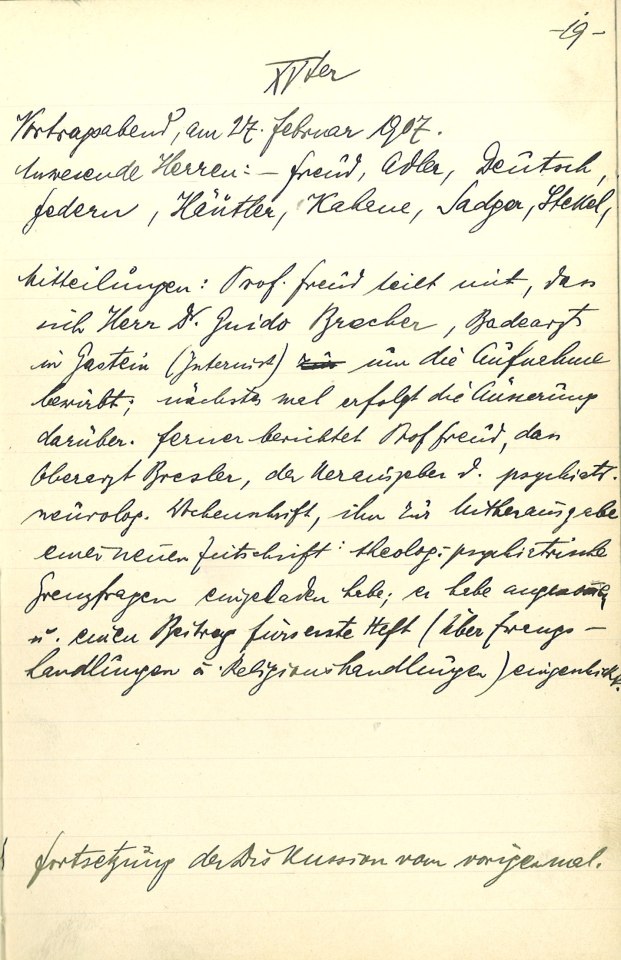 -19-
XVter
Vortragsabend, am 27. Februar 1907.
Anwesende Herren: – Freud, Adler, Deutsch,
Federn, Häutler, Kahane, Sadger, Stekel,
Mitteilungen: Prof. Freud teilt mit, dass
sich Herr Dr. Guido Brecher, Badearzt
in Gastein (Internist) um die Aufnahme
bewirbt; nächstes mal erfolgt die Äusserung
darüber. Ferner berichtet Prof Freud, dass
Oberarzt Bresler, der Herausgeber d. psychiatr.
neurolog. Wochenschrift, ihn zur Mitherausgabe
einer neuen Zeitschrift: theolog.-psychiatrische
Grenzfragen eingeladen habe; er habe angenom̅
u. einen Beitrag fürs erste Heft (Über Zwangs-
handlungen u. Religionshandlungen) eingeschickt.
Fortsetzung der Diskussion vom vorigenmal.